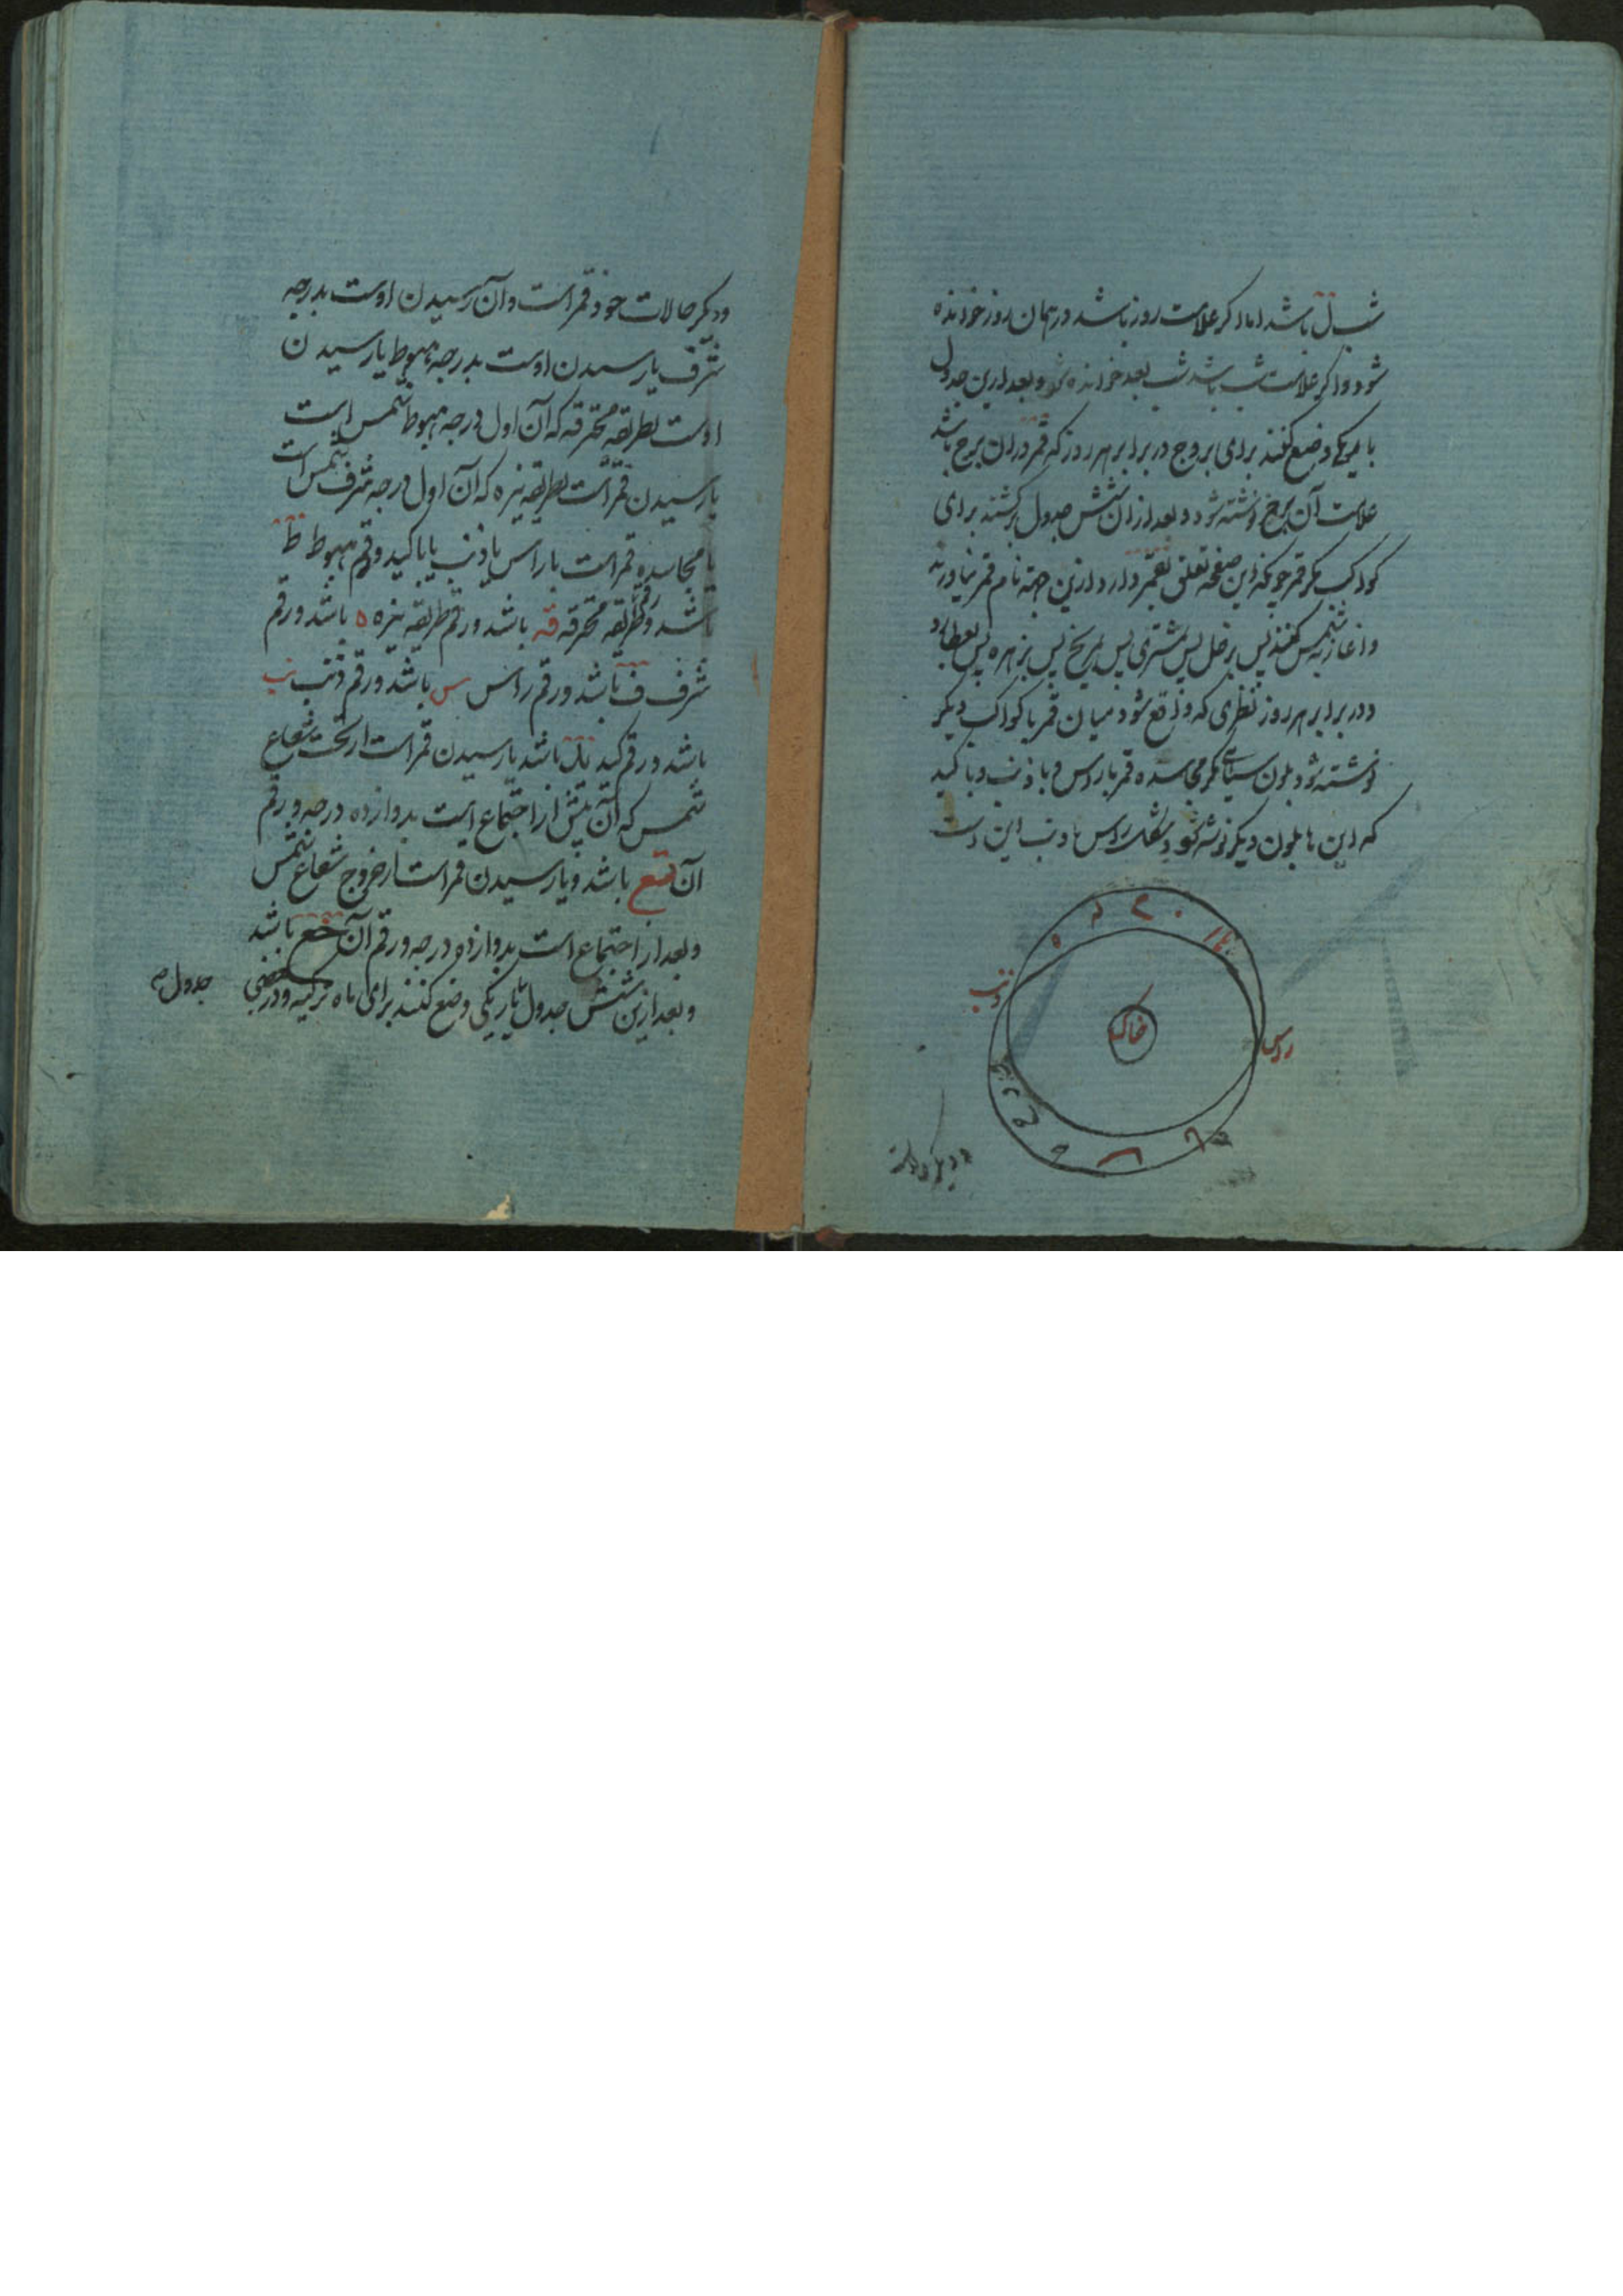 شب ل باشد اما اگر علامت روز باشد در همان روز خوانده
شود و اگر علامت شب باشد شب بعد خوانده شود و بعد ازین جدول
باریکی وضع کنند برای بروج در برابر هر روز که قمر در ان برج باشد
علامت آن برج نوشته شود و بعد از ان شش جدول برای
کواکب مگر قمر چونکه این صفحه تعلق بقمر دارد ازین جهة نام قمر نیاورند
و اغاز بشمس کنند پس بزحل پس بمشتری پس بمریخ پس بزهره پس بعطارد
و در برابر هر روز نظری که واقع شود میان قمر با کواکب دیگر
نوشته شود بلون سیاهی مگر مجاسده قمر با راس و با ذنب و با کید
که این ها بلون دیگر نوشته شود و شکل راس و ذنب این است
راس
ذنب
خاک
و دیگر حالات
و دیگر حالات خود قمر است و آن رسیدن اوست بدرجه
شرف یا رسیدن اوست بدرجه هبوط یا رسیدن
اوست بطریقه محترقه که آن اول درجه هبوط شمس است
یا رسیدن قمر است بطریقه نیره که آن اول درجه شرف شمس است
یا مجاسده قمر است با راس یا ذنب یا با کید و رقم هبوط ط
باشد و رقم طریقه محترقه قه باشد و رقم طریقه نیره ه باشد و رقم
شرف ف باشد و رقم راس س باشد و رقم ذنب نب
باشد و رقم کید ل باشد یا رسیدن قمر است از تحت شعاع
شمس که آن پیش از اجتماع است بدوازده درجه و رقم
آن تع باشد و یا رسیدن قمر است از خروج شعاع شمس
و بعد از اجتماع است بدوازده درجه و رقم آن خع باشد
و بعد ازین شش جدول باریکی وضع کنند برای ماه ترکیه و در بعضی
جدول